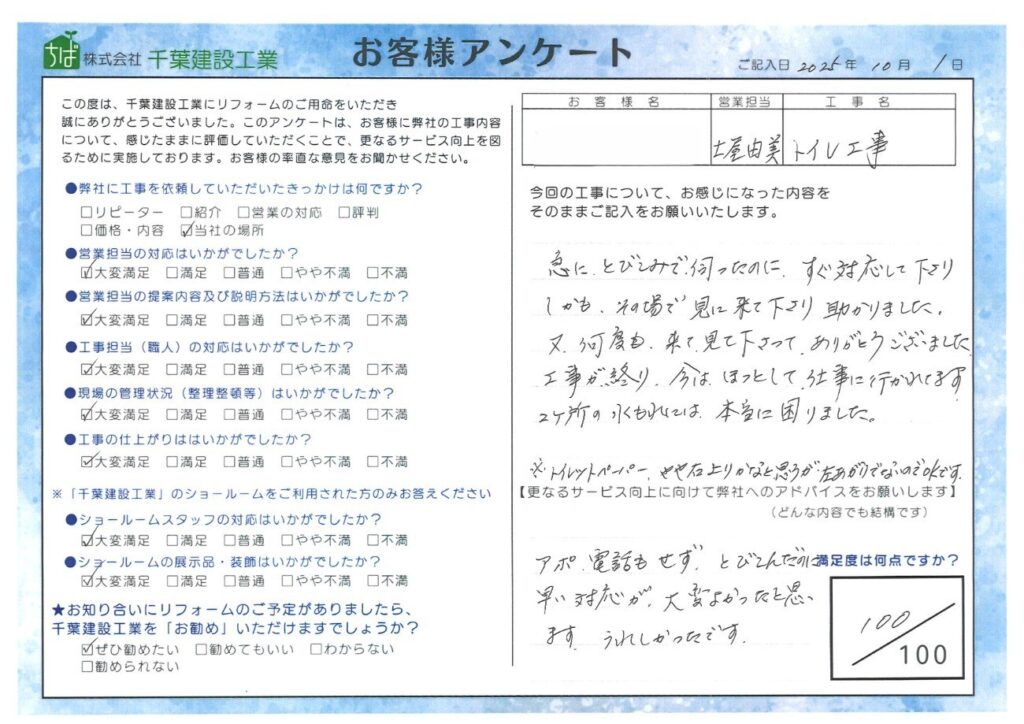 ちば 株式会社 千葉建設工業
お客様アンケート
ご記入日 2025年 10月 1日
この度は、千葉建設工業にリフォームのご用命をいただき
誠にありがとうございました。このアンケートは、お客様に弊社の工事内容
について、感じたままに評価していただくことで、更なるサービス向上を図
るために実施しております。お客様の率直な意見をお聞かせください。
●弊社に工事を依頼していただいたきっかけは何ですか？
□リピーター □紹介 □営業の対応 □評判
□価格・内容 ☑当社の場所
●営業担当の対応はいかがでしたか？
☑大変満足 □満足 □普通 □やや不満 □不満
●営業担当の提案内容及び説明方法はいかがでしたか？
☑大変満足 □満足 □普通 □やや不満 □不満
●工事担当（職人）の対応はいかがでしたか？
☑大変満足 □満足 □普通 □やや不満 □不満
●現場の管理状況（整理整頓等）はいかがでしたか？
☑大変満足 □満足 □普通 □やや不満 □不満
●工事の仕上がりははいかがでしたか？
☑大変満足 □満足 □普通 □やや不満 □不満
※「千葉建設工業」のショールームをご利用された方のみお答えください
●ショールームスタッフの対応はいかがでしたか？
☑大変満足 □満足 □普通 □やや不満 □不満
●ショールームの展示品・装飾はいかがでしたか？
☑大変満足 □満足 □普通 □やや不満 □不満
★お知り合いにリフォームのご予定がありましたら、
千葉建設工業を「お勧め」いただけますでしょうか？
☑ぜひ勧めたい □勧めてもいい □わからない
□勧められない
お客様名 営業担当 工事名
土屋由美 トイレ工事
今回の工事について、お感じになった内容を
そのままご記入をお願いいたします。
急に、とびこみで伺ったのに、すぐ対応して下さり
しかも、その場で見に来て下さり助かりました。
又、何度も、来て、見て下さって、ありがとうございました
工事が終り、今は、ほっとして、仕事に行かれてます
2ヶ所の水もれには、本当に困りました。
※トイレットペーパー、やや右上りかなと思うが左あがりでないのでOKです。
【更なるサービス向上に向けて弊社へのアドバイスをお願いします】
（どんな内容でも結構です）
アポ、電話もせず、とびこんだのに
早い対応が、大変よかったと思い
ます。うれしかったです。
満足度は何点ですか？
100/100